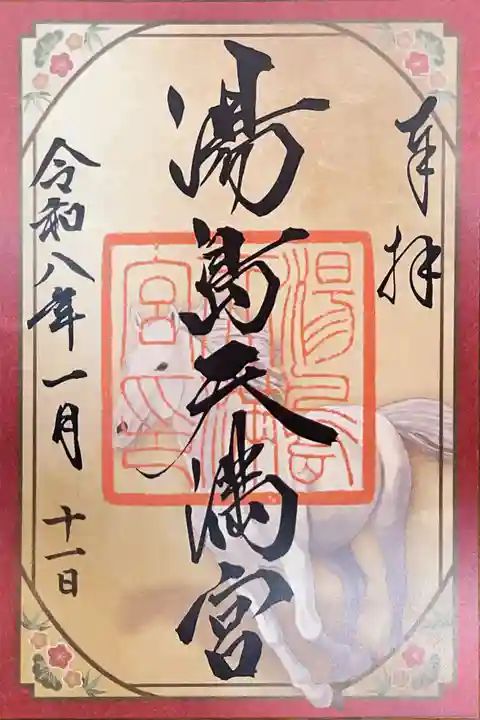 奉拝
湯島天満宮
湯島
天満
宮之印
令和八年一月十一日